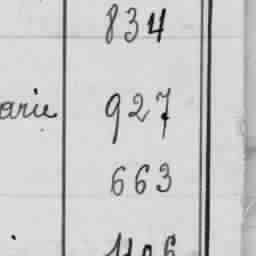 834
arie 927
663
1106